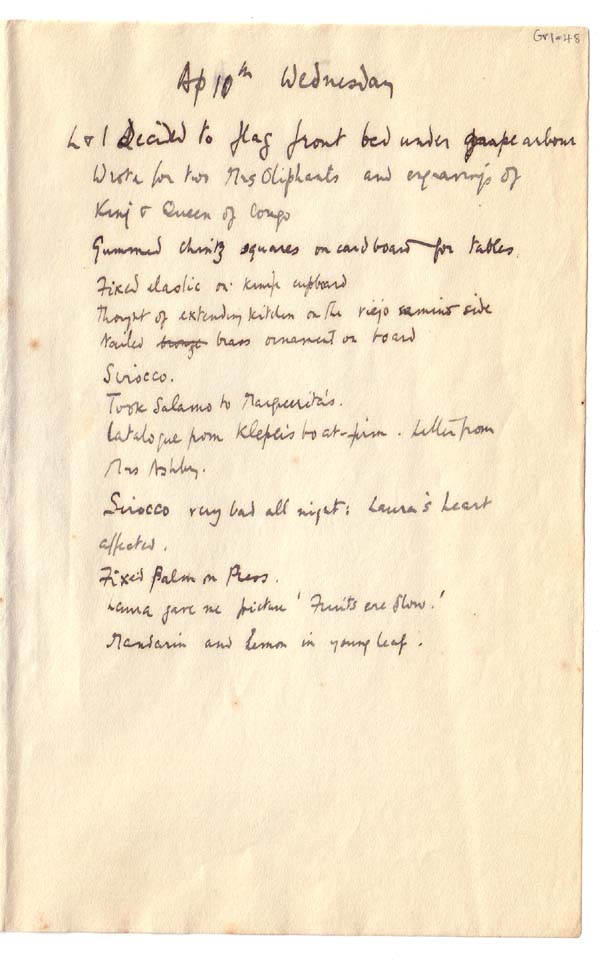 Gr1-48
Ap 10th Wednesday
L & I decided to flag front bed under grape arbour
Wrote for two Mrs Oliphants and engravings of
King & Queen of Congo
Gummed chintz squares on cardboard for tables.
Fixed elastic on knife cupboard
Thought of extending kitchen on the viejo camino side
Nailed bronze brass ornament on board
Sirocco.
Took Salamo to Marguerita's.
Catalogue from boat-firm. Letter from
Mrs Ashby.
Sirocco very bad all night: Laura's heart
affected.
Fixed Palm on Press.
Laura gave me picture 'Fruits ere flow.'
Mandarin and Lemon in young leaf.